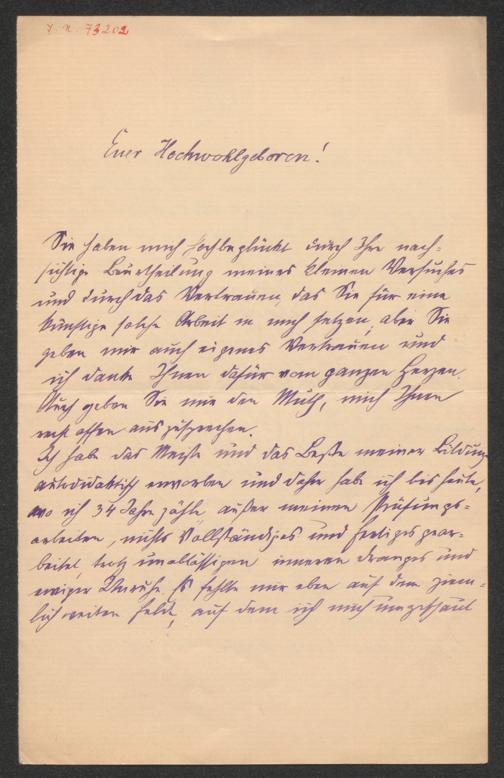 J. N. 73202
Euer Hochwohlgeboren!
Sie haben mich hochbeglückt durch Ihre nach-
sichtige Beurtheilung meines kleinen Versuches
und durch das Vertrauen, das Sie für eine
künftige solche Arbeit in mich setzen, aber Sie
geben mir auch eigenes Vertrauen und
ich danke Ihnen dafür vom ganzen Herzen.
Auch geben Sie mir den Muth, mich Ihnen
recht offen auszusprechen.
Ich habe das Meiste und das Beste meiner Bildung
autodidaktisch erworben und daher habe ich bis heute,
wo ich 34 Jahre zähle, außer meinen Prüfungs-
arbeiten, nichts Vollständiges und fertiges gear-
beitet, trotz unablässigen inneren Dranges und
ewiger Unruhe. Es fehlte mir eben auf dem ziem-
lich weiten Felde, auf dem ich mich umgeschaut